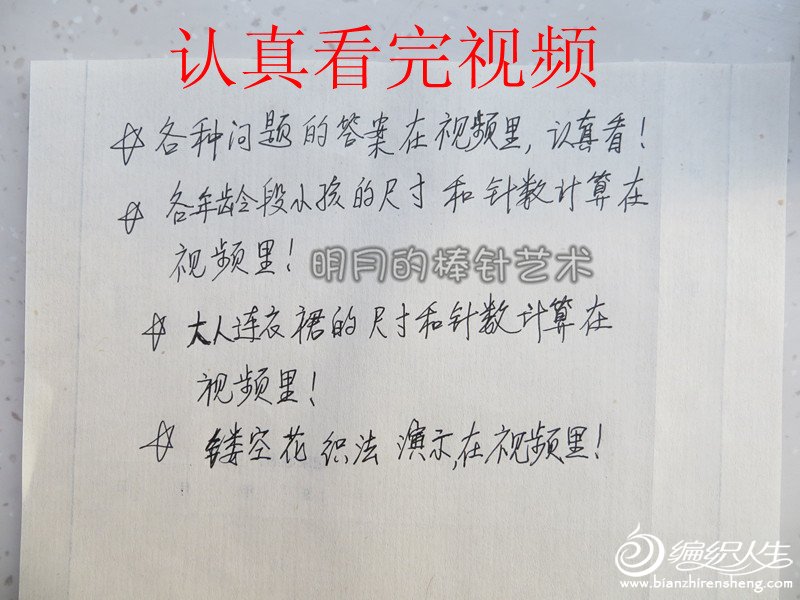 认真看完视频
☆各种问题的答案在视频里,认真看!
☆各年龄段小孩的尺寸和针数计算在
视频里!
明月的棒针艺术
☆大人连衣裙的尺寸和针数计算在
视频里!
☆镂空花织法演示,在视频里!
编织人生
www.bianzhirensheng.com